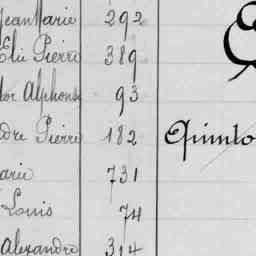 Jean Marie 292
Elie Pierre 389
tor Alphonse 93
dre Pierre 182 Quinto
arie 731
Louis 74
Alexandre 314